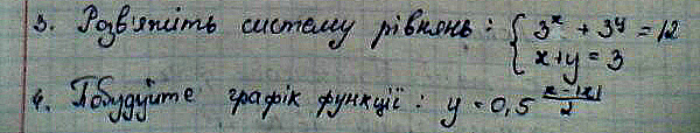 3. Розв'яжіть систему рівнянь: { 3^x + 3^y = 12
x + y = 3
4. Побудуйте графік функції: y = 0,5^((x-|x|)/2)